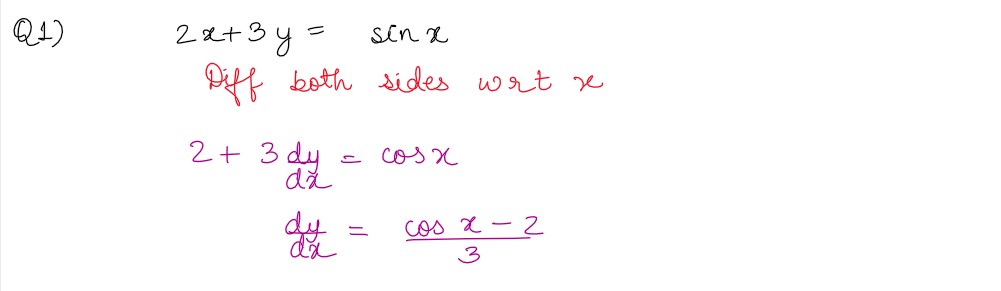 Q1) 2x+3y = sin x
Diff both sides wrt x
2 + 3 dy/dx = cos x
dy/dx = cos x - 2/3